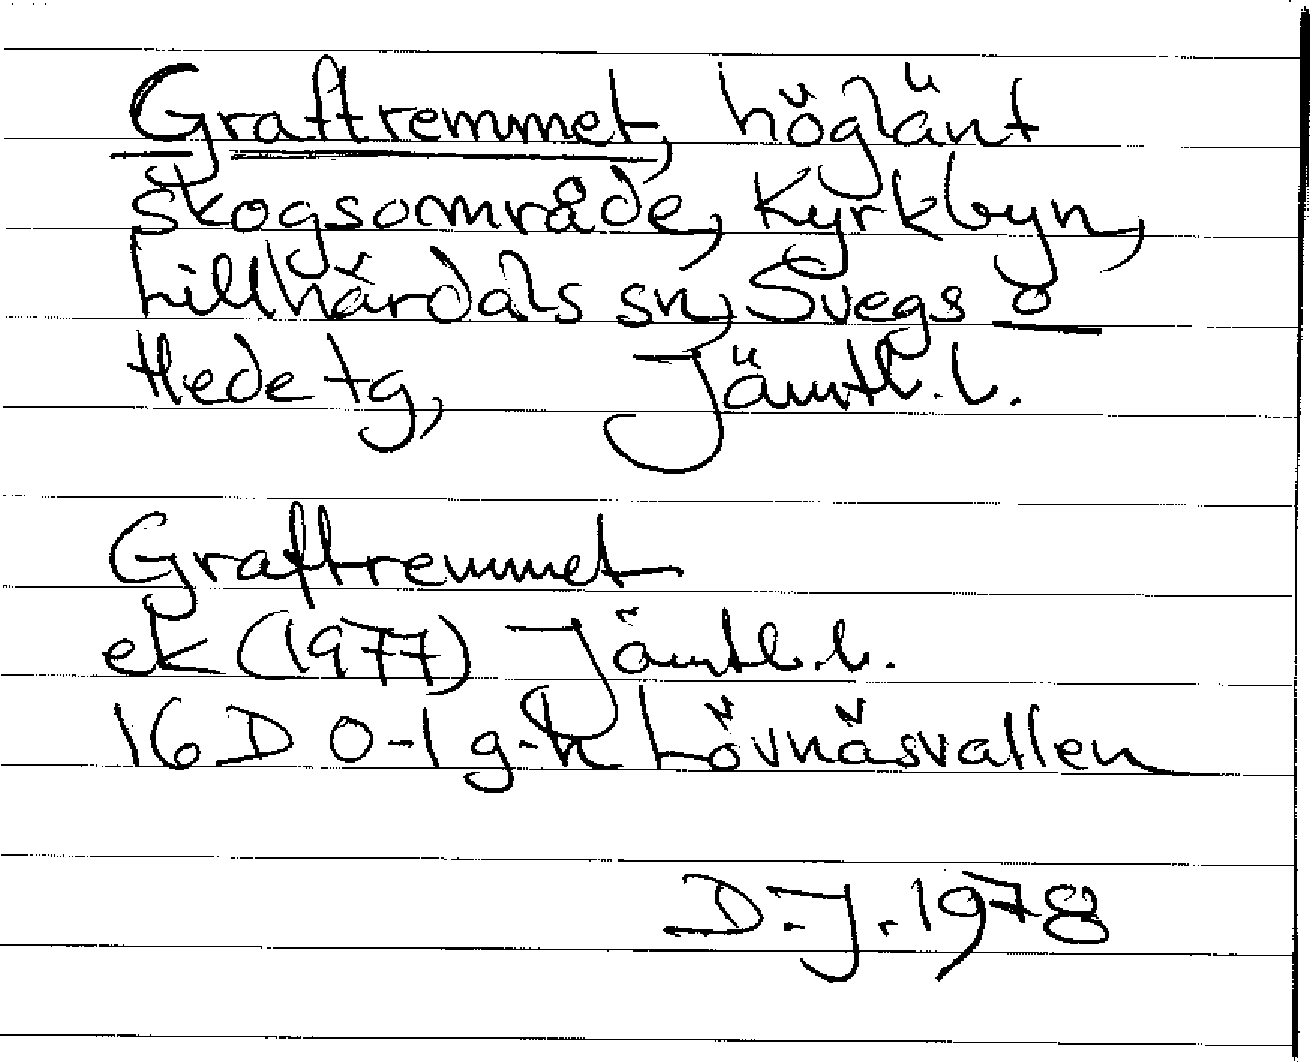 Graftremmet, höglänt
skogsområde, Kyrkbyn,
Lillhärdals sn, Svegs o
Hede tg, Jämtl. l.
Graftremmet
ek (1977) Jämtl. l.
16 D 0-1 g-h Lövnäsvallen
D. J. 1978